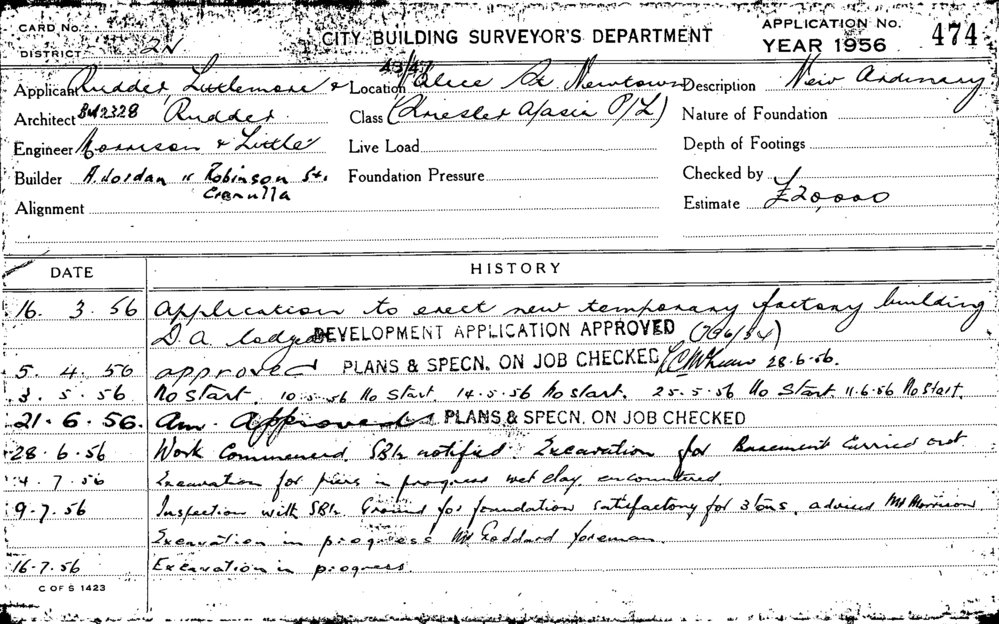 CARD No.
DISTRICT 2N
CITY BUILDING SURVEYOR'S DEPARTMENT
APPLICATION No.
YEAR 1956
474
Applicant Rudder, Littlemore &
Location 43/47 Alice St Newtown
Description New
Architect BW2328 Rudder
Class (Chrysler A/asia P/L)
Nature of Foundation
Engineer Morrison & Little
Live Load
Depth of Footings
Builder A. Jordan 11 Robinson St.
Cronulla
Foundation Pressure
Checked by
Alignment
Estimate £20,000
DATE HISTORY
16. 3. 56 Application to erect new temporary factory building
D.A. lodged DEVELOPMENT APPLICATION APPROVED
5. 4. 56 approved PLANS & SPECN. ON JOB CHECKED 28.6.56.
3. 5. 56 No start. 10.5.56 No start. 14.5.56 No start. 25.5.56 No start 11.6.56 No start.
21. 6. 56. Am. Approved PLANS & SPECN. ON JOB CHECKED
28. 6. 56 Work Commenced. notified. Excavation for Basement Carried out
4. 7. 56 Excavation for piers in progress wet clay encountered
9.7.56 Inspection with Ground for foundation satisfactory for 3 tons, advised Mr Morrison
Excavation in progress Mr Goddard foreman.
16.7.56 Excavation in progress.
C OF S 1423